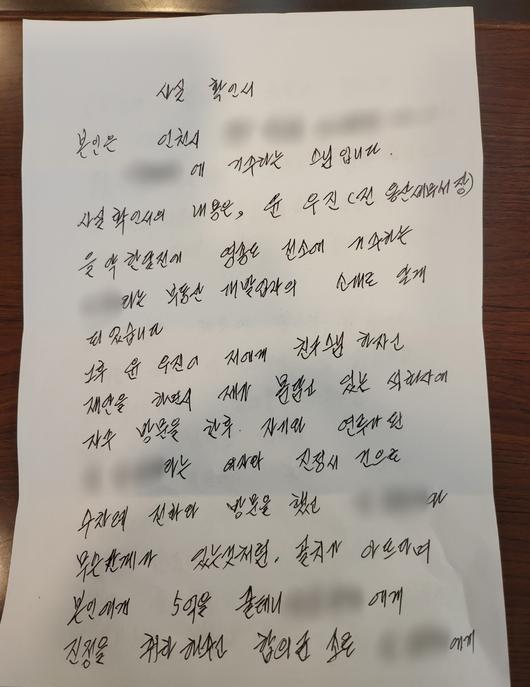 사실 확인서
본인은 인천시
에 기수하는 스님 입니다.
사실 확인서의 내용은, 윤 우진 (전 용산세무서장)
을 약 한달전에 영종도 전소에 거수하는
라는 부동산 개발업자의 소개로 알게
되었습니다
그후 윤 우진이 저에게 하자는
제안을 하면서 제가 있는 사에
자주 방문을 한후. 자기와 연루가 된
라는 여자와 진정서 건으로
수차례 전화와 방문을 했는 과
무슨관계가 있는것처럼, 골치가 아프다며
본인에게 5억을 줄테니 에게
진정을 취하 해주는 합의금 으로 에게